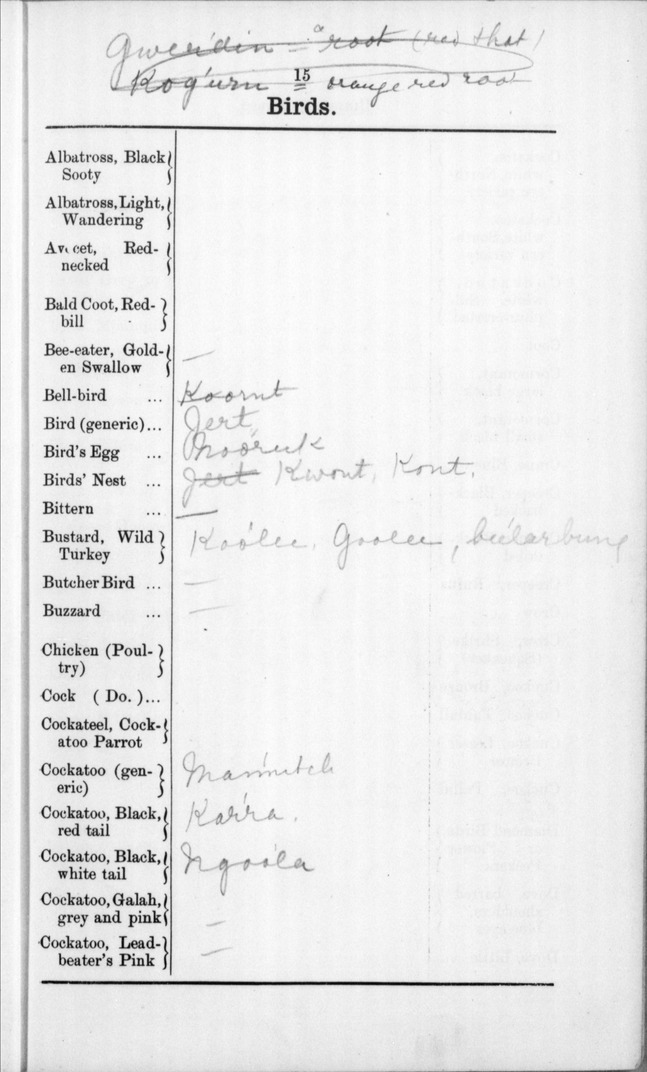 Gweridin = a root (red that)
Kog'urn = orange red root
15
Birds.
Albatross, Black
Sooty
Albatross, Light,
Wandering
Avocet, Red-
necked
Bald Coot, Red-
bill -
Bee-eater, Gold-
en Swallow —
Bell-bird ... Koornt
Bird (generic)... Jert
Bird's Egg ... Nooruk
Birds' Nest ... Jert Kwont, Kont,
Bittern ... —
Bustard, Wild
Turkey Koólee, Goolee, béelarbung
Butcher Bird ... —
Buzzard ... —
Chicken (Poul-
try)
Cock ( Do. )...
Cockateel, Cock-
atoo Parrot
Cockatoo (gen-
eric) Mannitch
Cockatoo, Black,
red tail Karra.
Cockatoo, Black,
white tail Ngoóla
Cockatoo, Galah,
grey and pink —
Cockatoo, Lead-
beater's Pink —